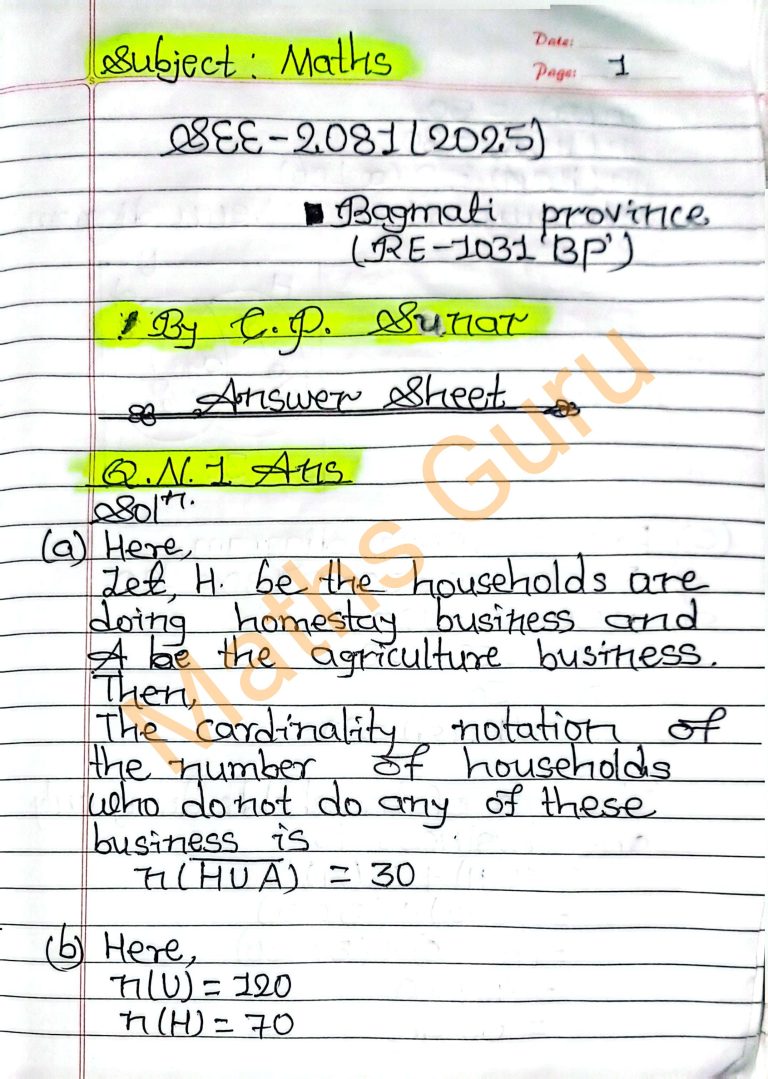 Subject: Maths
Date:
Page: 1
SEE-2081(2025)
Bagmati province
(RE-1031'BP')
By C.P. Sunar
Answer Sheet
Q.N.1 Ans
Solⁿ.
(a) Here,
Let, H. be the households are
doing homestay business and
A be the agriculture business.
Then,
The cardinality notation of
the number of households
who do not do any of these
business is
n(H̅ ̅U̅ ̅A̅) = 30
(b) Here,
n(U) = 120
n(H) = 70
Maths Guru